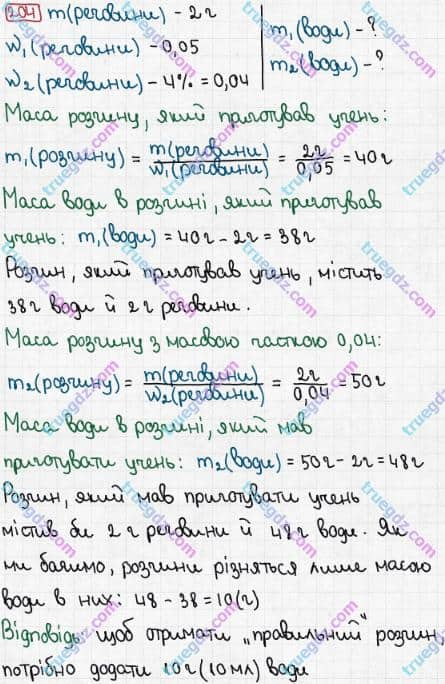 204 m(речовини) - 2г
m₁(води) - ?
w₁(речовини) - 0,05
m₂(води) - ?
w₂(речовини) - 4% = 0,04
Маса розчину, який приготував учень:
m₁(розчину) = m(речовини) / w₁(речовини) = 2г / 0,05 = 40г
Маса води в розчині, який приготував
учень: m₁(води) = 40г - 2г = 38г
Розчин, який приготував учень, містить
38г води й 2г речовини.
Маса розчину з масовою часткою 0,04:
m₂(розчину) = m(речовини) / w₂(речовини) = 2г / 0,04 = 50г
Маса води в розчині, який мав
приготувати учень: m₂(води) = 50г - 2г = 48г
Розчин, який мав приготувати учень
містив би 2г речовини й 48г води. Як
ми бачимо, розчини різняться лише масою
води в них: 48 - 38 = 10(г)
Відповідь: щоб отримати „правильний" розчин,
потрібно додати 10г (10мл) води
truegdz.com